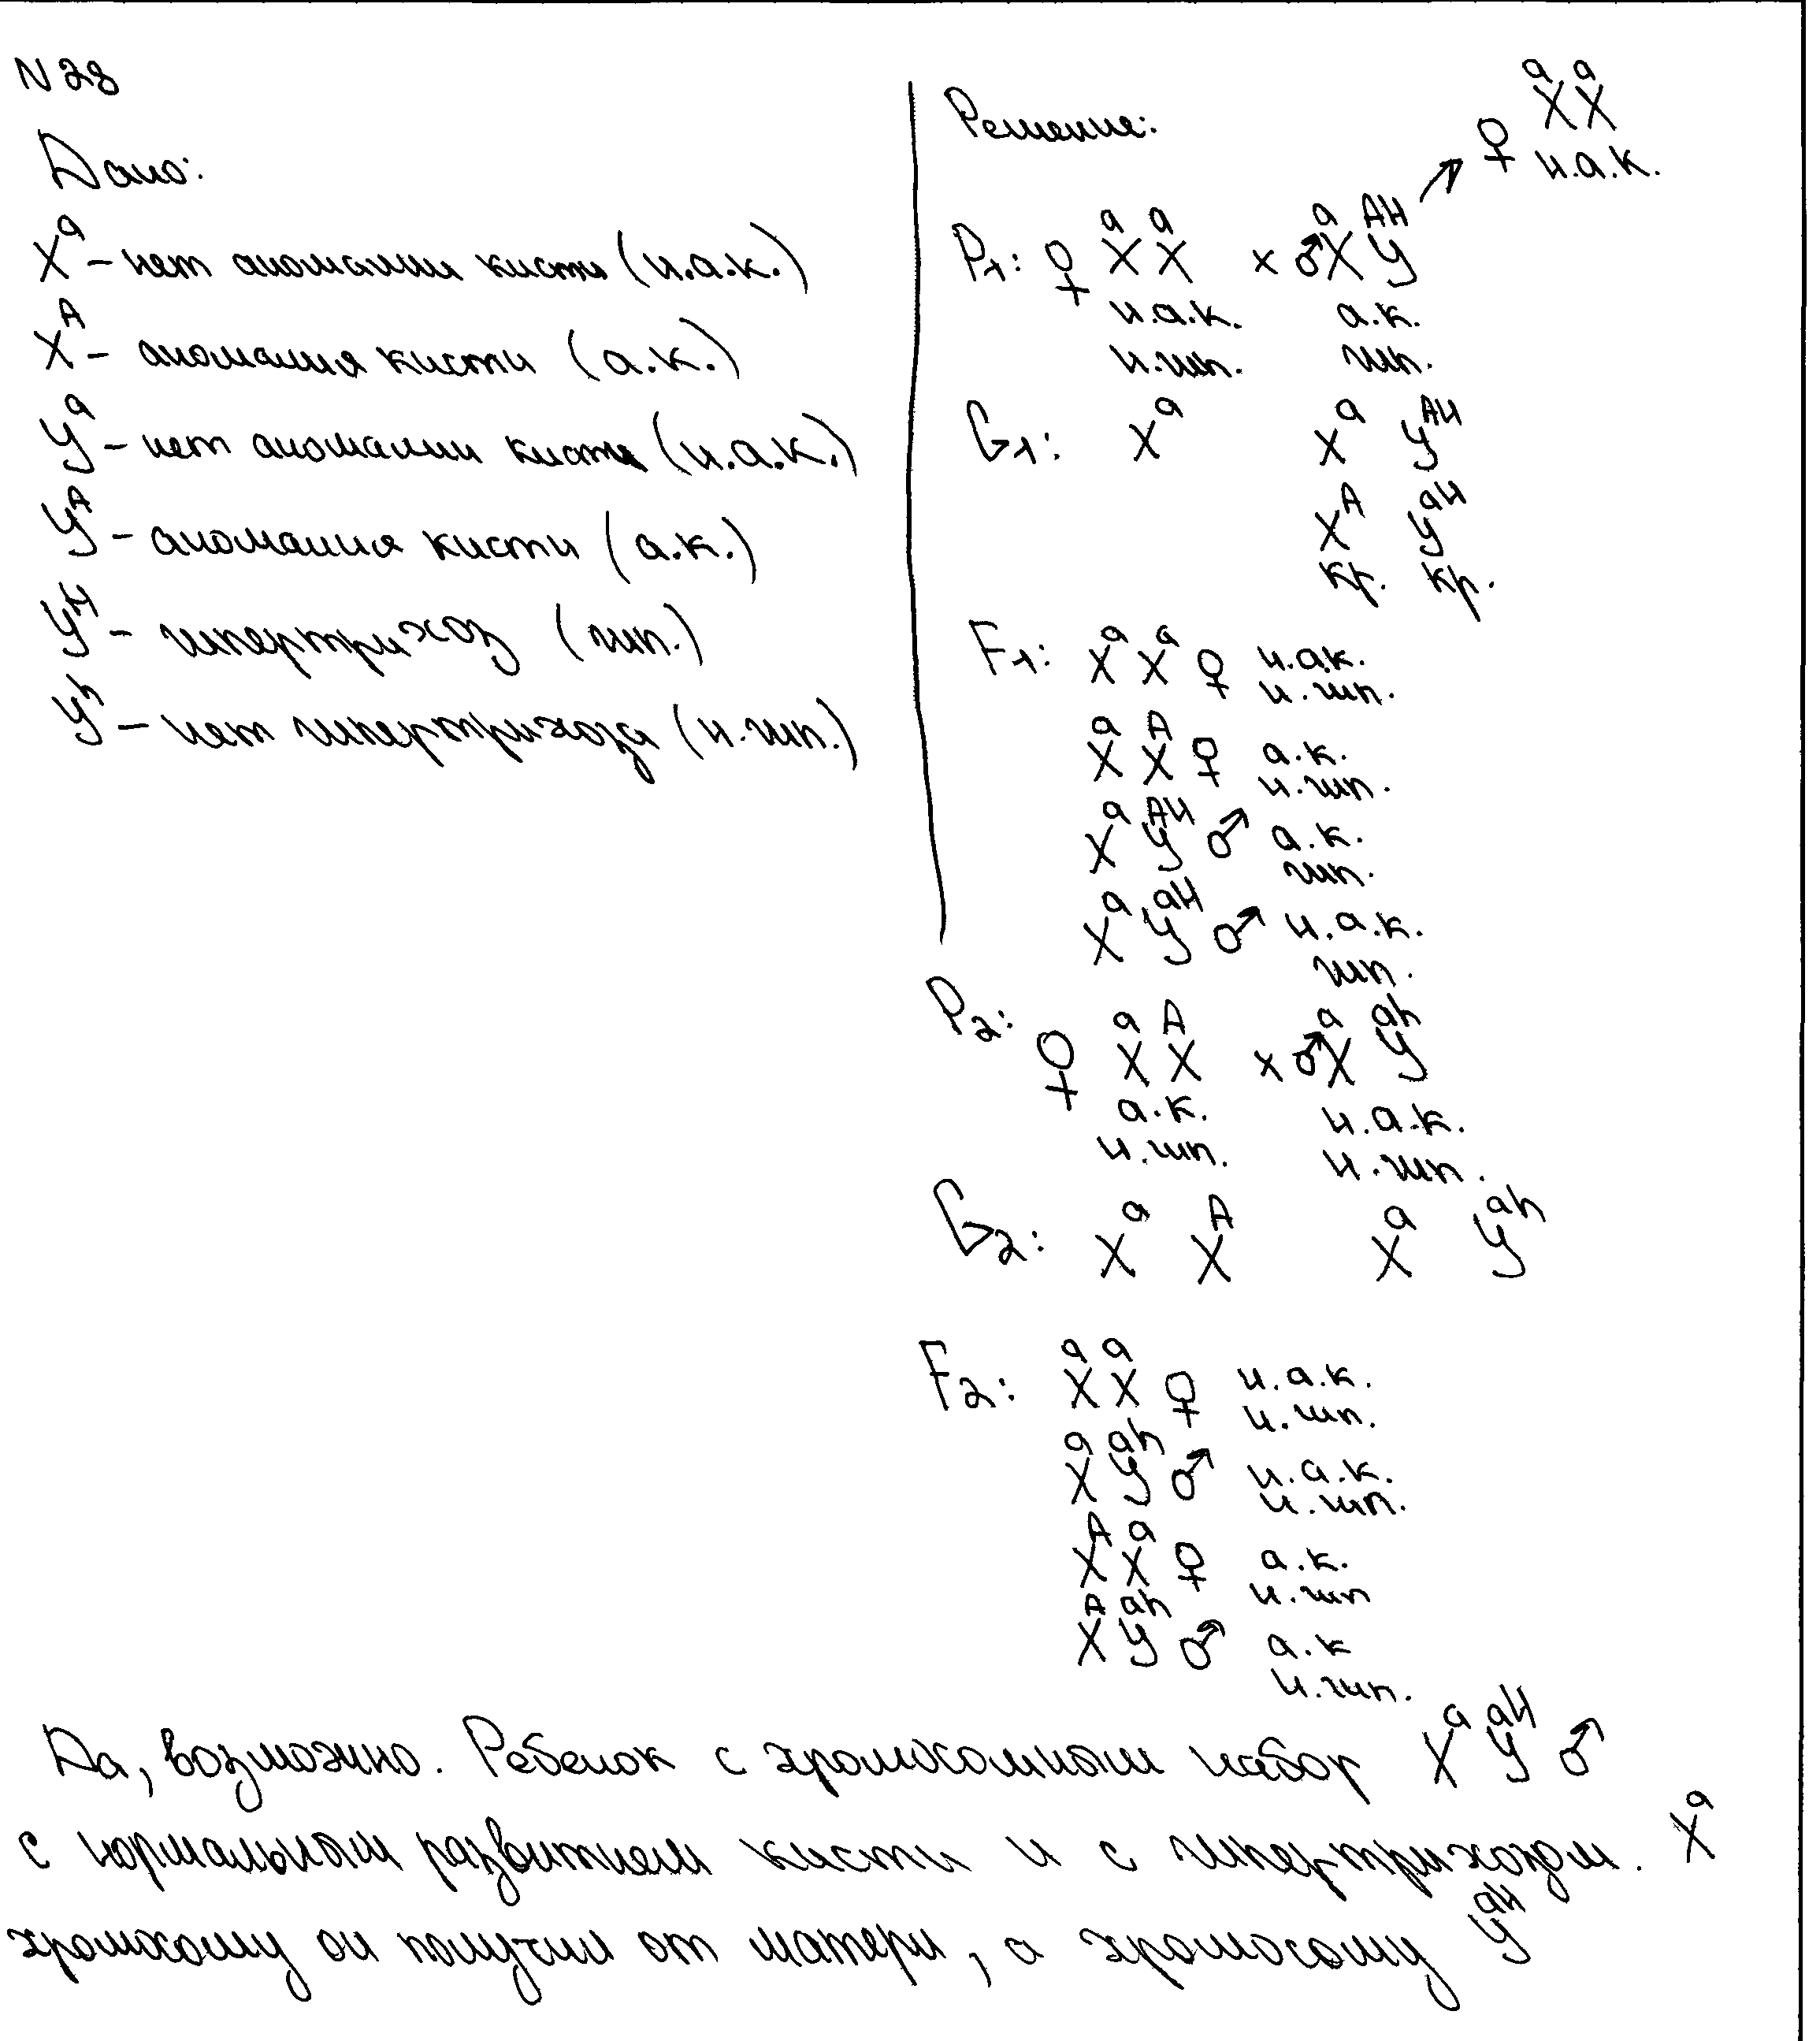 N 28
Дано:
Xᵃ – нет аномалии кисти (н.а.к.)
Xᴬ – аномалия кисти (а.к.)
Yᵃ – нет аномалии кисти (н.а.к.)
Yᴬ – аномалия кисти (а.к.)
Yᴴ – гипертрихоз (гип.)
Yʰ – нет гипертрихоза (н.гип.)
Решение:
♀ XᵃXᵃ
н.а.к.
P₁: ♀ XᵃXᵃ × ♂ XᵃYᴬᴴ
н.а.к. а.к.
н.гип. гип.
G₁: Xᵃ Xᵃ Yᴬᴴ
Xᴬ Yᵃᴴ
кр. кр.
F₁: XᵃXᵃ ♀ н.а.к.
н.гип.
XᵃXᴬ ♀ а.к.
н.гип.
XᵃYᴬᴴ ♂ а.к.
гип.
XᵃYᵃᴴ ♂ н.а.к.
гип.
P₂: ♀ XᵃXᴬ × ♂ XᵃYᵃʰ
а.к. н.а.к.
н.гип. н.гип.
G₂: Xᵃ Xᴬ Xᵃ Yᵃʰ
F₂: XᵃXᵃ ♀ н.а.к.
н.гип.
XᵃYᵃʰ ♂ н.а.к.
н.гип.
XᴬXᵃ ♀ а.к.
н.гип
XᴬYᵃʰ ♂ а.к
н.гип.
Да, возможно. Ребенок с хромосомным набор XᵃYᵃᴴ ♂
с нормальным развитием кисти и с гипертрихозом. Xᵃ
хромосому он получил от матери, а хромосому Yᵃᴴ